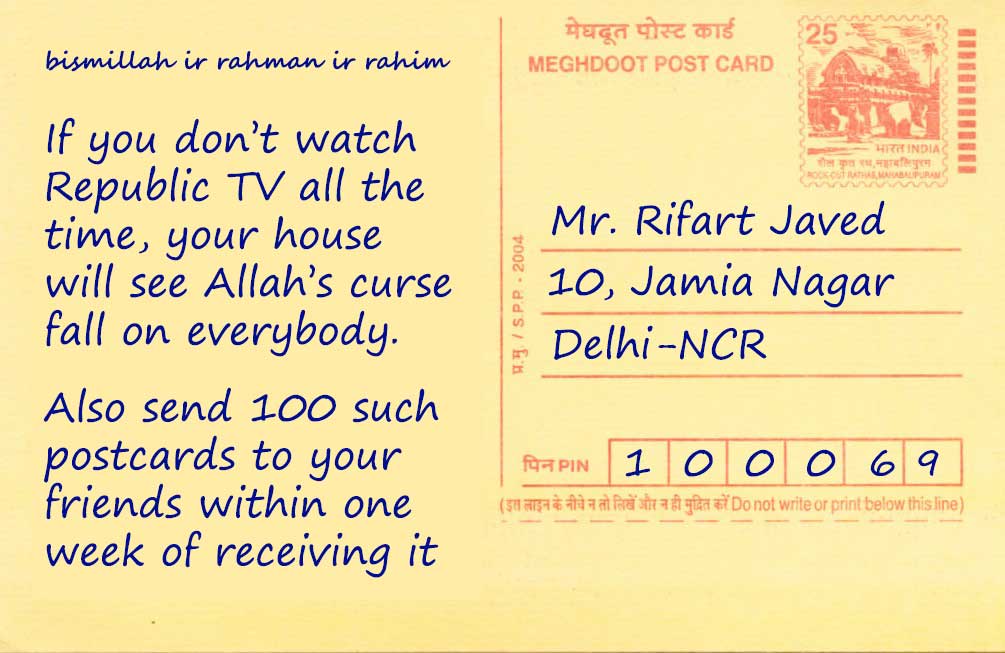 bismillah ir rahman ir rahim
If you don't watch
Republic TV all the
time, your house
will see Allah's curse
fall on everybody.
Also send 100 such
postcards to your
friends within one
week of receiving it
मेघदूत पोस्ट कार्ड
MEGHDOOT POST CARD
25
भारत INDIA
शैल कृत रथ, महाबलिपुरम
ROCK-CUT RATHAS, MAHABALIPURAM
प्र.मु. / S.P.P. - 2004
Mr. Rifart Javed
10, Jamia Nagar
Delhi-NCR
पिन PIN 1 0 0 0 6 9
(इस लाइन के नीचे न तो लिखें और न ही मुद्रित करें Do not write or print below this line)